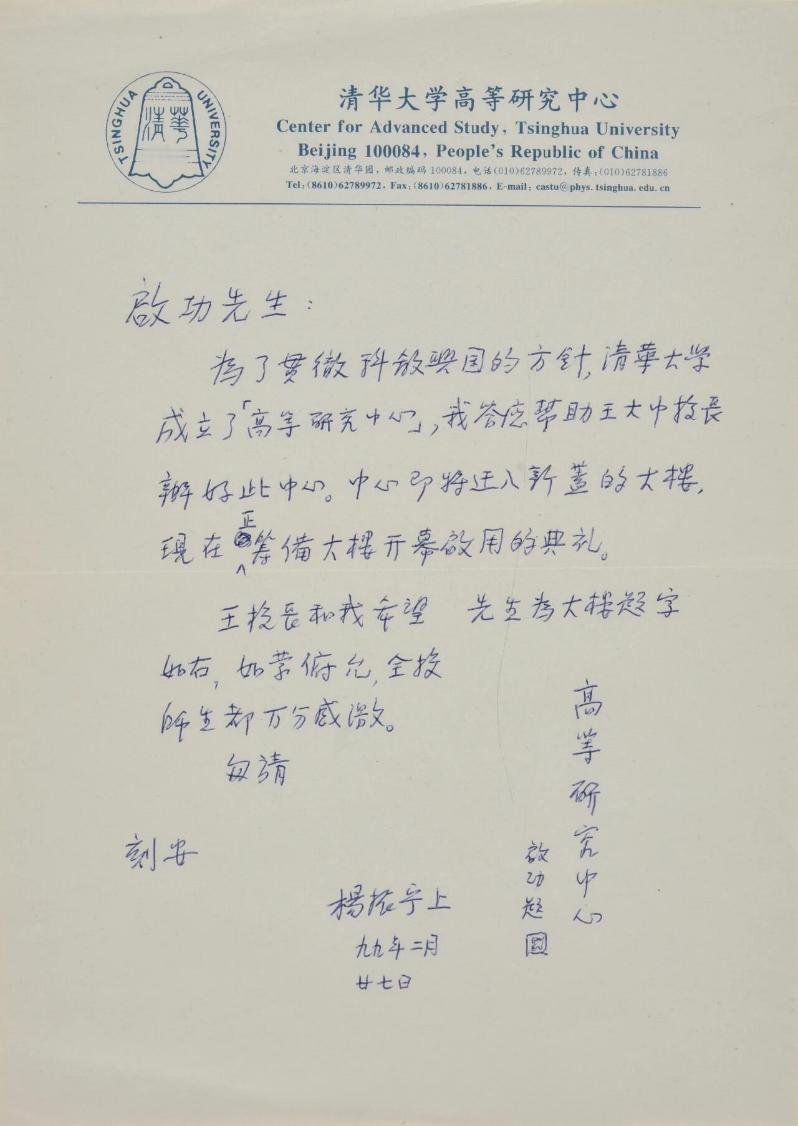 TSINGHUA UNIVERSITY
清華
清华大学高等研究中心
Center for Advanced Study, Tsinghua University
Beijing 100084, People's Republic of China
北京海淀区清华园，邮政编码 100084，电话(010)62789972，传真：(010)62781886
Tel:(8610)62789972, Fax:(8610)62781886, E-mail: castu@phys.tsinghua.edu.cn
啟功先生：
為了貫徹科教興国的方針，清華大学
成立了「高等研究中心」，我答应幫助王大中校長
辦好此中心。中心即將迁入新蓋的大樓，
現在正籌備大樓开幕啟用的典礼。
王校長和我希望 先生為大樓題字
如右，如蒙俯允，全校
師生都万分感激。
匆請
刻安
楊振宁上
九九年二月
廿七日
高等研究中心
啟功題